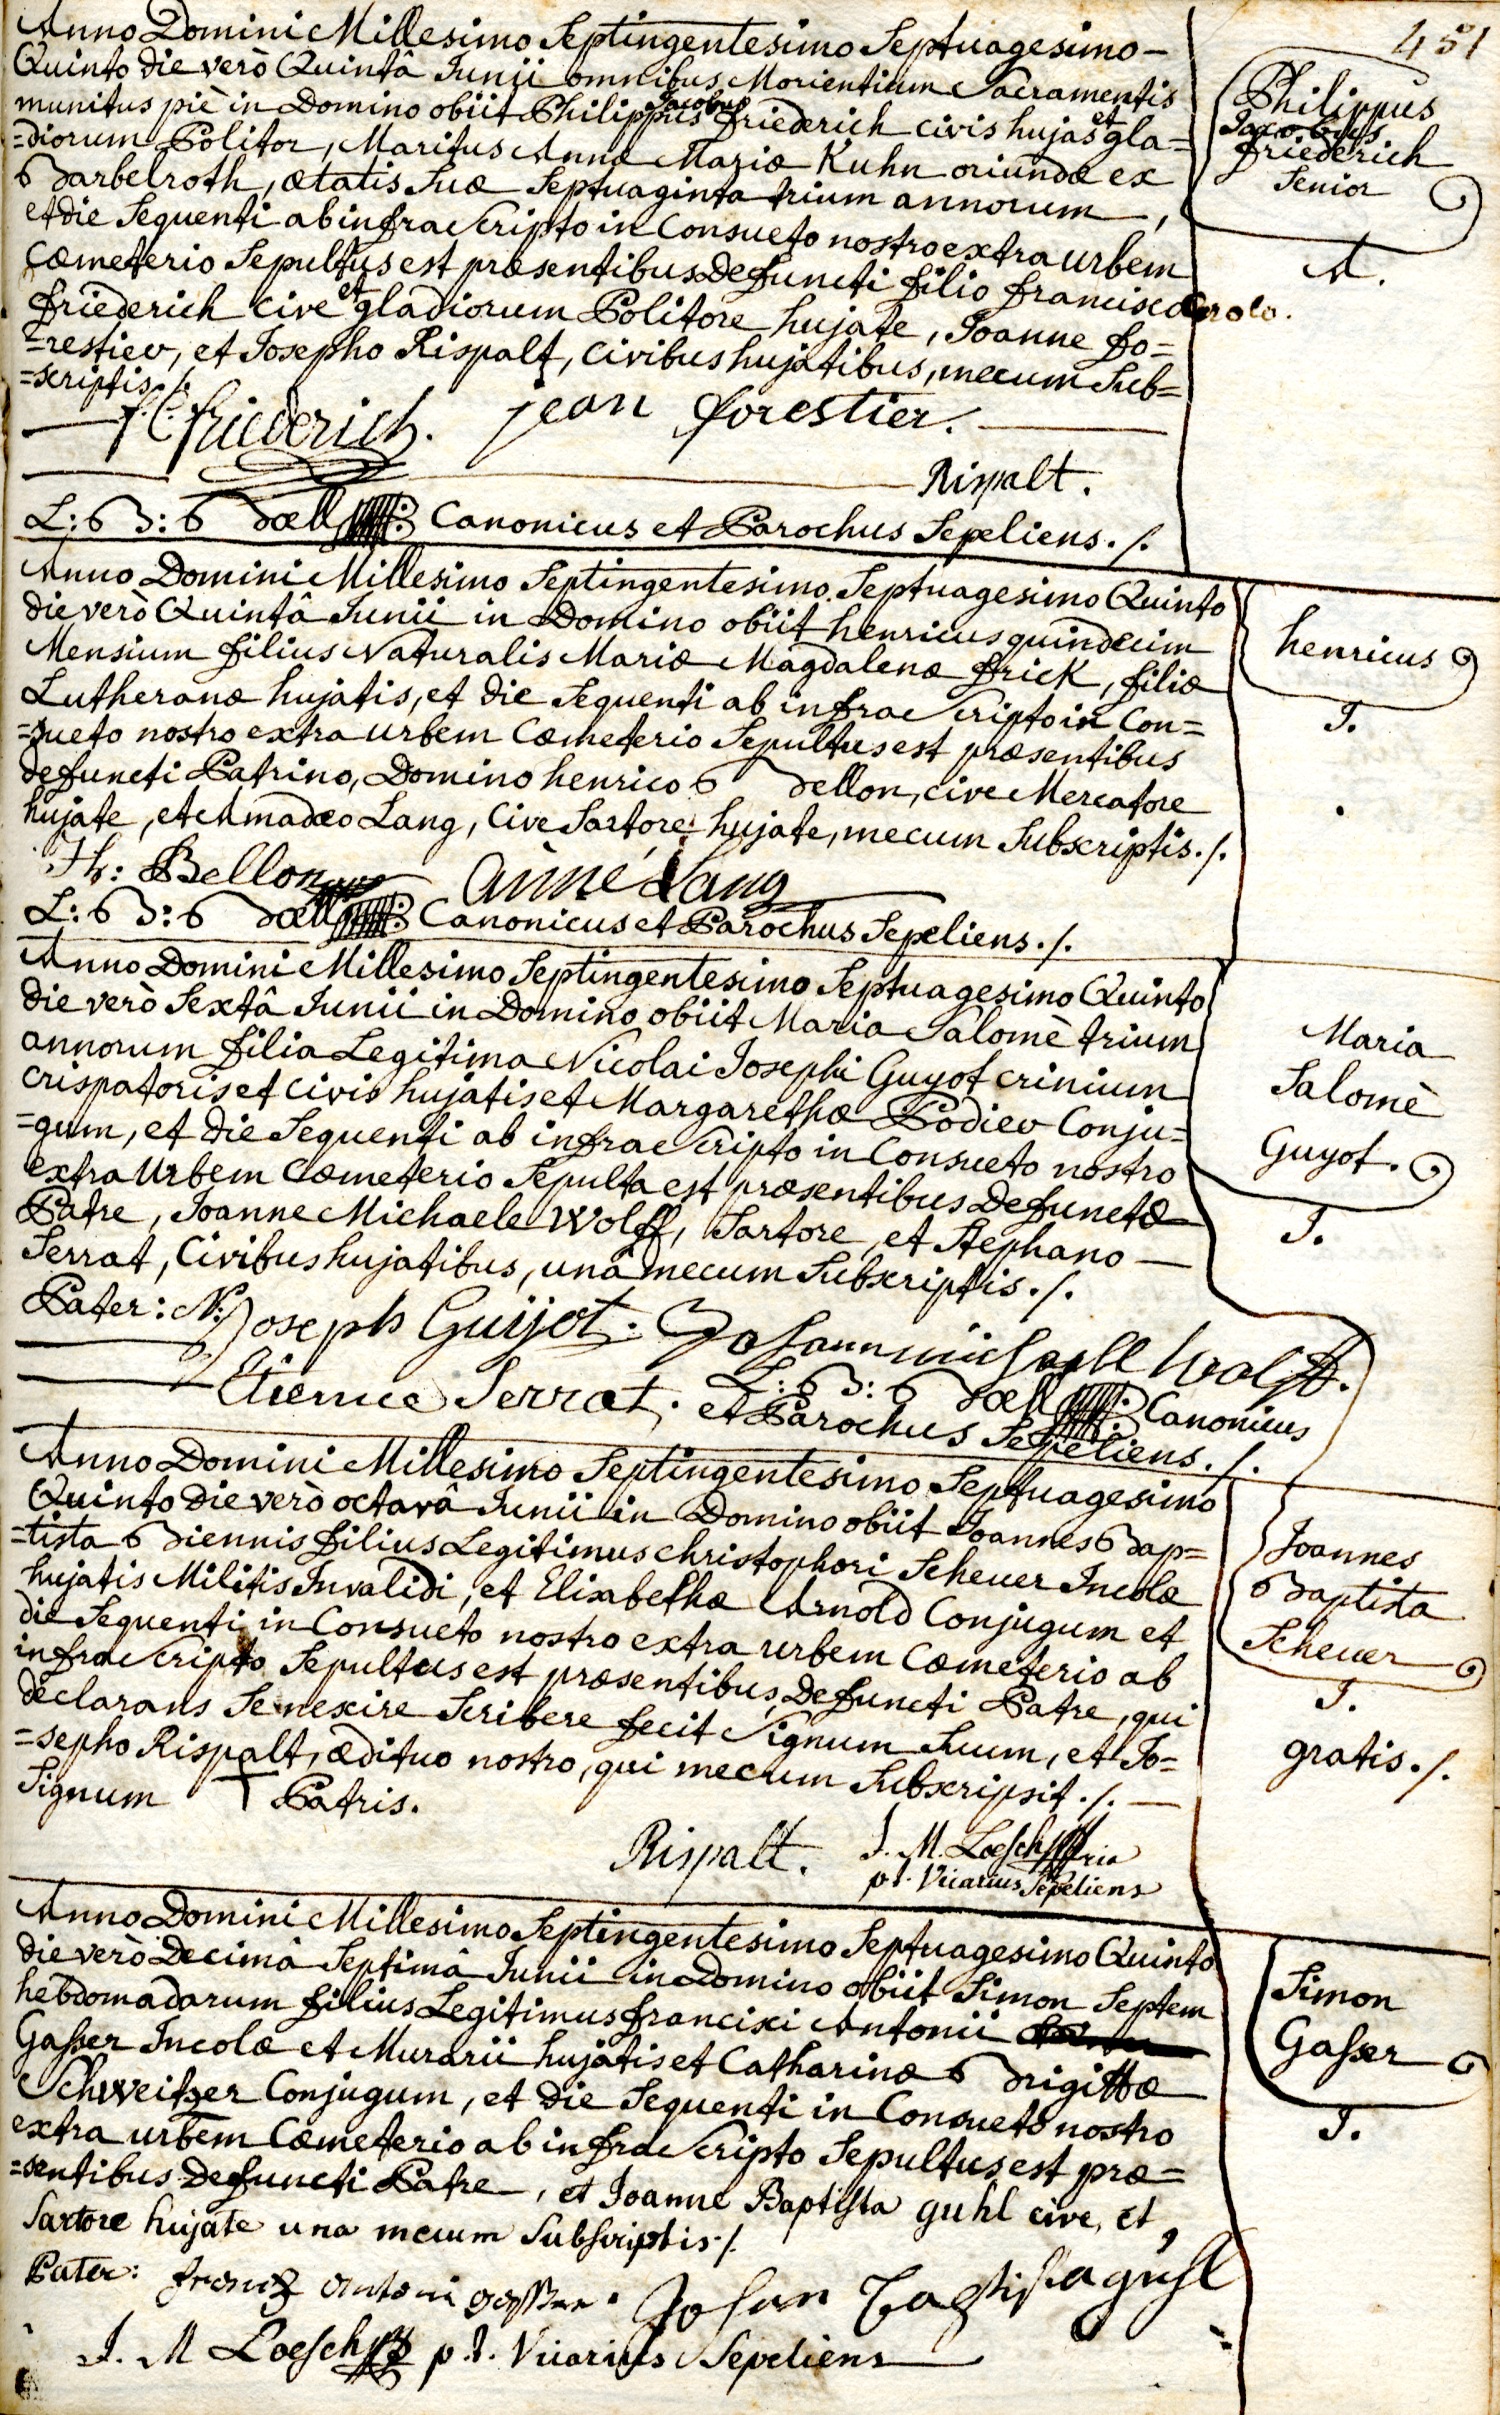 451
Anno Domini Millesimo Septingentesimo Septuagesimo-
Quinto die verò Quintâ Junii omnibus Morientium Sacramentis
munitus piè in Domino obiit Philippus Jacobus friederich civis hujas et gla=
=diorum Politor, Maritus Annæ Mariæ Kuhn oriundæ ex
Barbelroth, ætatis suæ Septuaginta trium annorum,
et die Sequenti ab infra Scripto in Consueto nostro extra urbem
Cæmeterio Sepultus est præsentibus Defuncti filio francisco Carolo.
friederich Cive et gladiorum Politore hujate, Joanne fo=
=restier, et Josepho Rispalt, Civibus hujatibus, mecum Sub=
=scriptis ./.
Philippus
Jacobus
friederich
Senior
A.
f. C. friederich. jean forestier.
Rispalt.
L: B: Bæll Canonicus et Parochus Sepeliens ./.
Anno Domini Millesimo Septingentesimo Septuagesimo Quinto
die verò Quintâ Junii in Domino obiit henricus quindecim
Mensium filius Naturalis Mariæ Magdalenæ frick, filiæ
Lutheranæ hujatis, et die Sequenti ab infra Scripto in Con=
=sueto nostro extra urbem Cæmeterio Sepultus est præsentibus
defuncti Patrino, Domino henrico Bellon, cive Mercatore
hujate, et Amadæo Lang, Cive Sartore hujate, mecum Subscriptis ./.
henricus
J.
H: Bellon aimé Lang
L: B: Bæll Canonicus et Parochus Sepeliens ./.
Anno Domini Millesimo Septingentesimo Septuagesimo Quinto
die verò Sextâ Junii in Domino obiit Maria Salomè trium
annorum filia Legitima Nicolai Josephi Guyot crinium
crispatoris et civis hujatis et Margarethæ Podiev Conju=
=gum, et die Sequenti ab infra Scripto in Consueto nostro
extra Urbem Cæmeterio Sepulta est præsentibus Defunctæ
Patre, Joanne Michaele Wolff, Sartore, et Stephano
Serrat, Civibus hujatibus, unâ mecum Subscriptis ./.
Maria
Salomè
Guyot.
J.
Pater: N: Joseph Guijot. Johann michaell Wolff.
Etienne Serrat. L: B: Bæll Canonicus
et Parochus Sepeliens ./.
Anno Domini Millesimo Septingentesimo Septuagesimo
Quinto die verò octavâ Junii in Domino obiit Joannes Bap=
=tista Biennis filius Legitimus christophori Scheuer Incolæ
hujatis Militis Invalidi, et Elisabethæ Arnold Conjugum et
die Sequenti in Consueto nostro extra urbem Cæmeterio ab
infra Scripto Sepultus est præsentibus, Defuncti Patre, qui
declarans Se nescire Scribere fecit Signum Suum, et Jo=
=sepho Rispalt, ædituo nostro, qui mecum Subscripsit ./.
Joannes
Baptista
Scheuer
J.
gratis ./.
Signum T Patris.
Rispalt. J. M. Loesch
p.t. Vicarius Sepeliens
Anno Domini Millesimo Septingentesimo Septuagesimo Quinto
die verò Decimâ Septimâ Junii in Domino obiit Simon Septem
hebdomadarum filius Legitimus francisci Antonii
Gasser Incolæ et Murarii hujatis et Catharinæ Brigittæ
Schweitzer Conjugum, et die Sequenti in Consueto nostro
extra urbem Cæmeterio ab infra Scripto Sepultus est præ=
=sentibus Defuncti Patre, et Joanne Baptista guhl cive, et
Sartore hujate una mecum Subscriptis ./.
Simon
Gasser
J.
Pater: frantz Antoni gasser. Johan Baptista guhl
J. M Loesch p.t. Vicarius Sepeliens